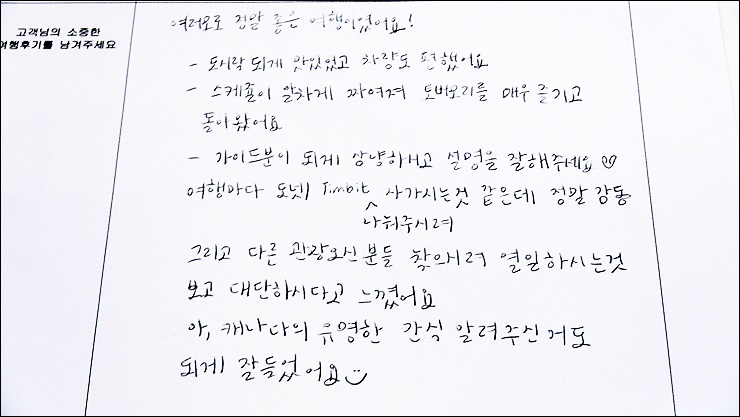 고객님의 소중한
여행후기를 남겨주세요
여러모로 정말 좋은 여행이었어요!
- 도시락 되게 맛있었고 차량도 편했어요
- 스케쥴이 알차게 짜여져 토버모리를 매우 즐기고
돌아왔어요
- 가이드분이 되게 상냥하시고 설명을 잘해주세요♡
여행마다 도넛이 Timbit 사가시는것 같은데 정말 감동
나눠주시려
그리고 다른 관광오신분들 찾으시려 열일하시는것
보고 대단하시다고 느꼈어요
아, 캐나다의 유명한 간식 알려주신거도
되게 잘들었어요